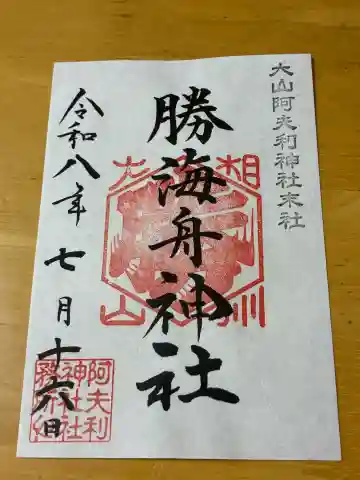 大山阿夫利神社末社
勝海舟神社
令和八年七月十六日
相州
大山
阿夫利
神社社
務局